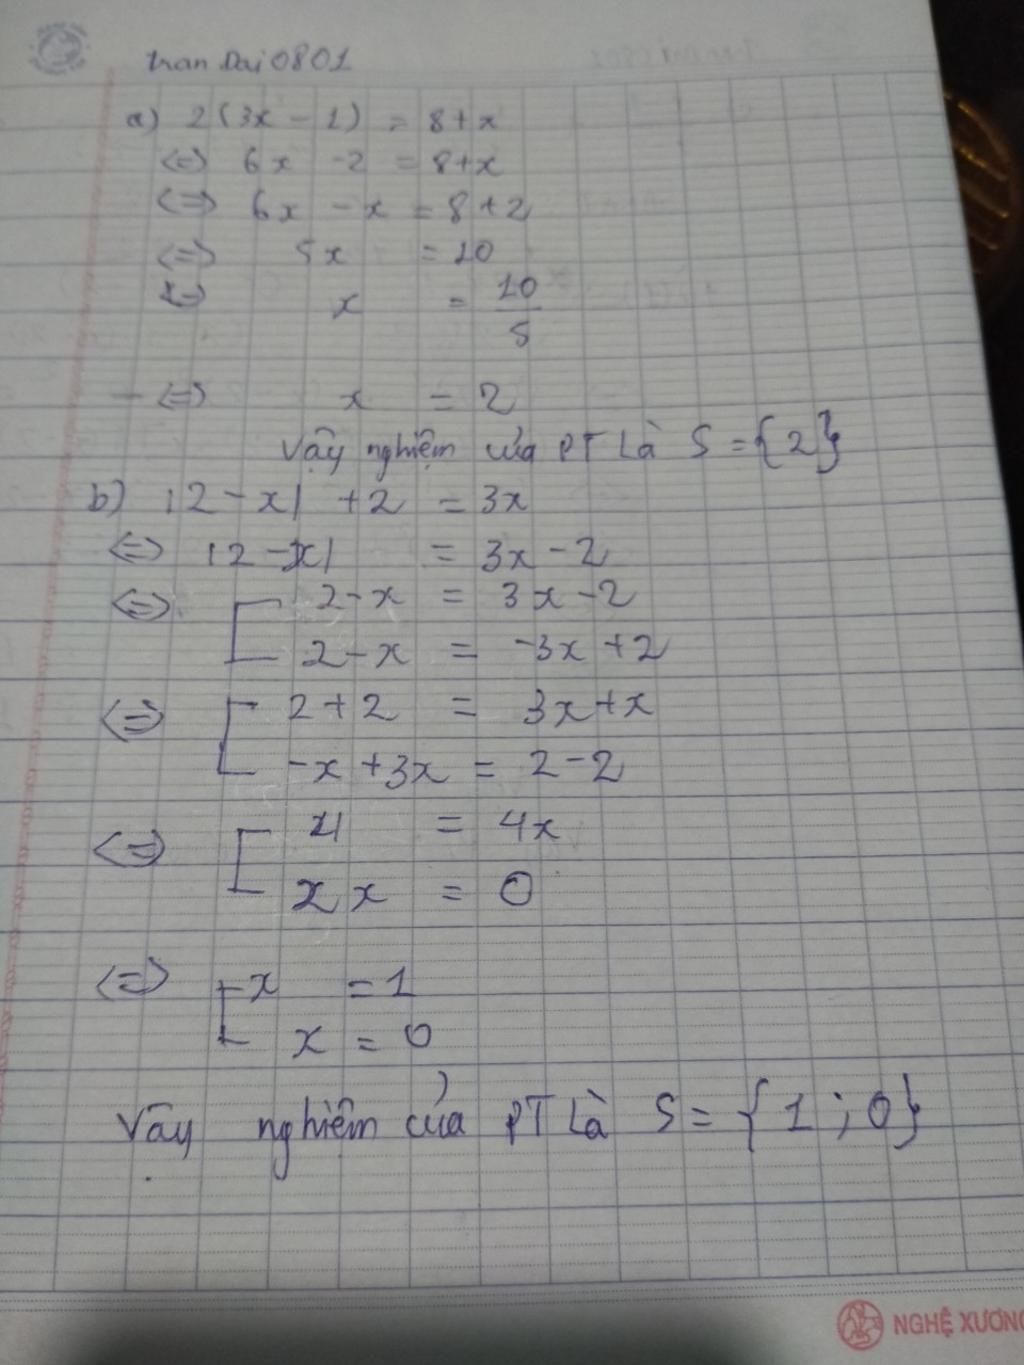 Tran Dai 0801
a) 2(3x - 1) = 8+x
<=> 6x - 2 = 8+x
<=> 6x - x = 8+2
<=> 5x = 10
<=> x = 10/5
<=> x = 2
Vậy nghiệm của PT Là S = {2}
b) |2-x| +2 = 3x
<=> |2-x| = 3x-2
<=> [ 2-x = 3x-2
2-x = -3x+2
<=> [ 2+2 = 3x+x
-x+3x = 2-2
<=> [ 4 = 4x
2x = 0
<=> [ x = 1
x = 0
Vậy nghiệm của PT Là S = {1;0}
NGHỆ XƯƠNG